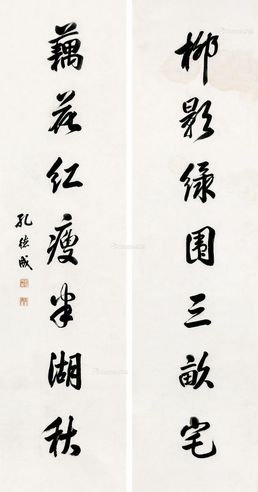 柳影绿围三亩宅
藕花红瘦半湖秋
孔德成